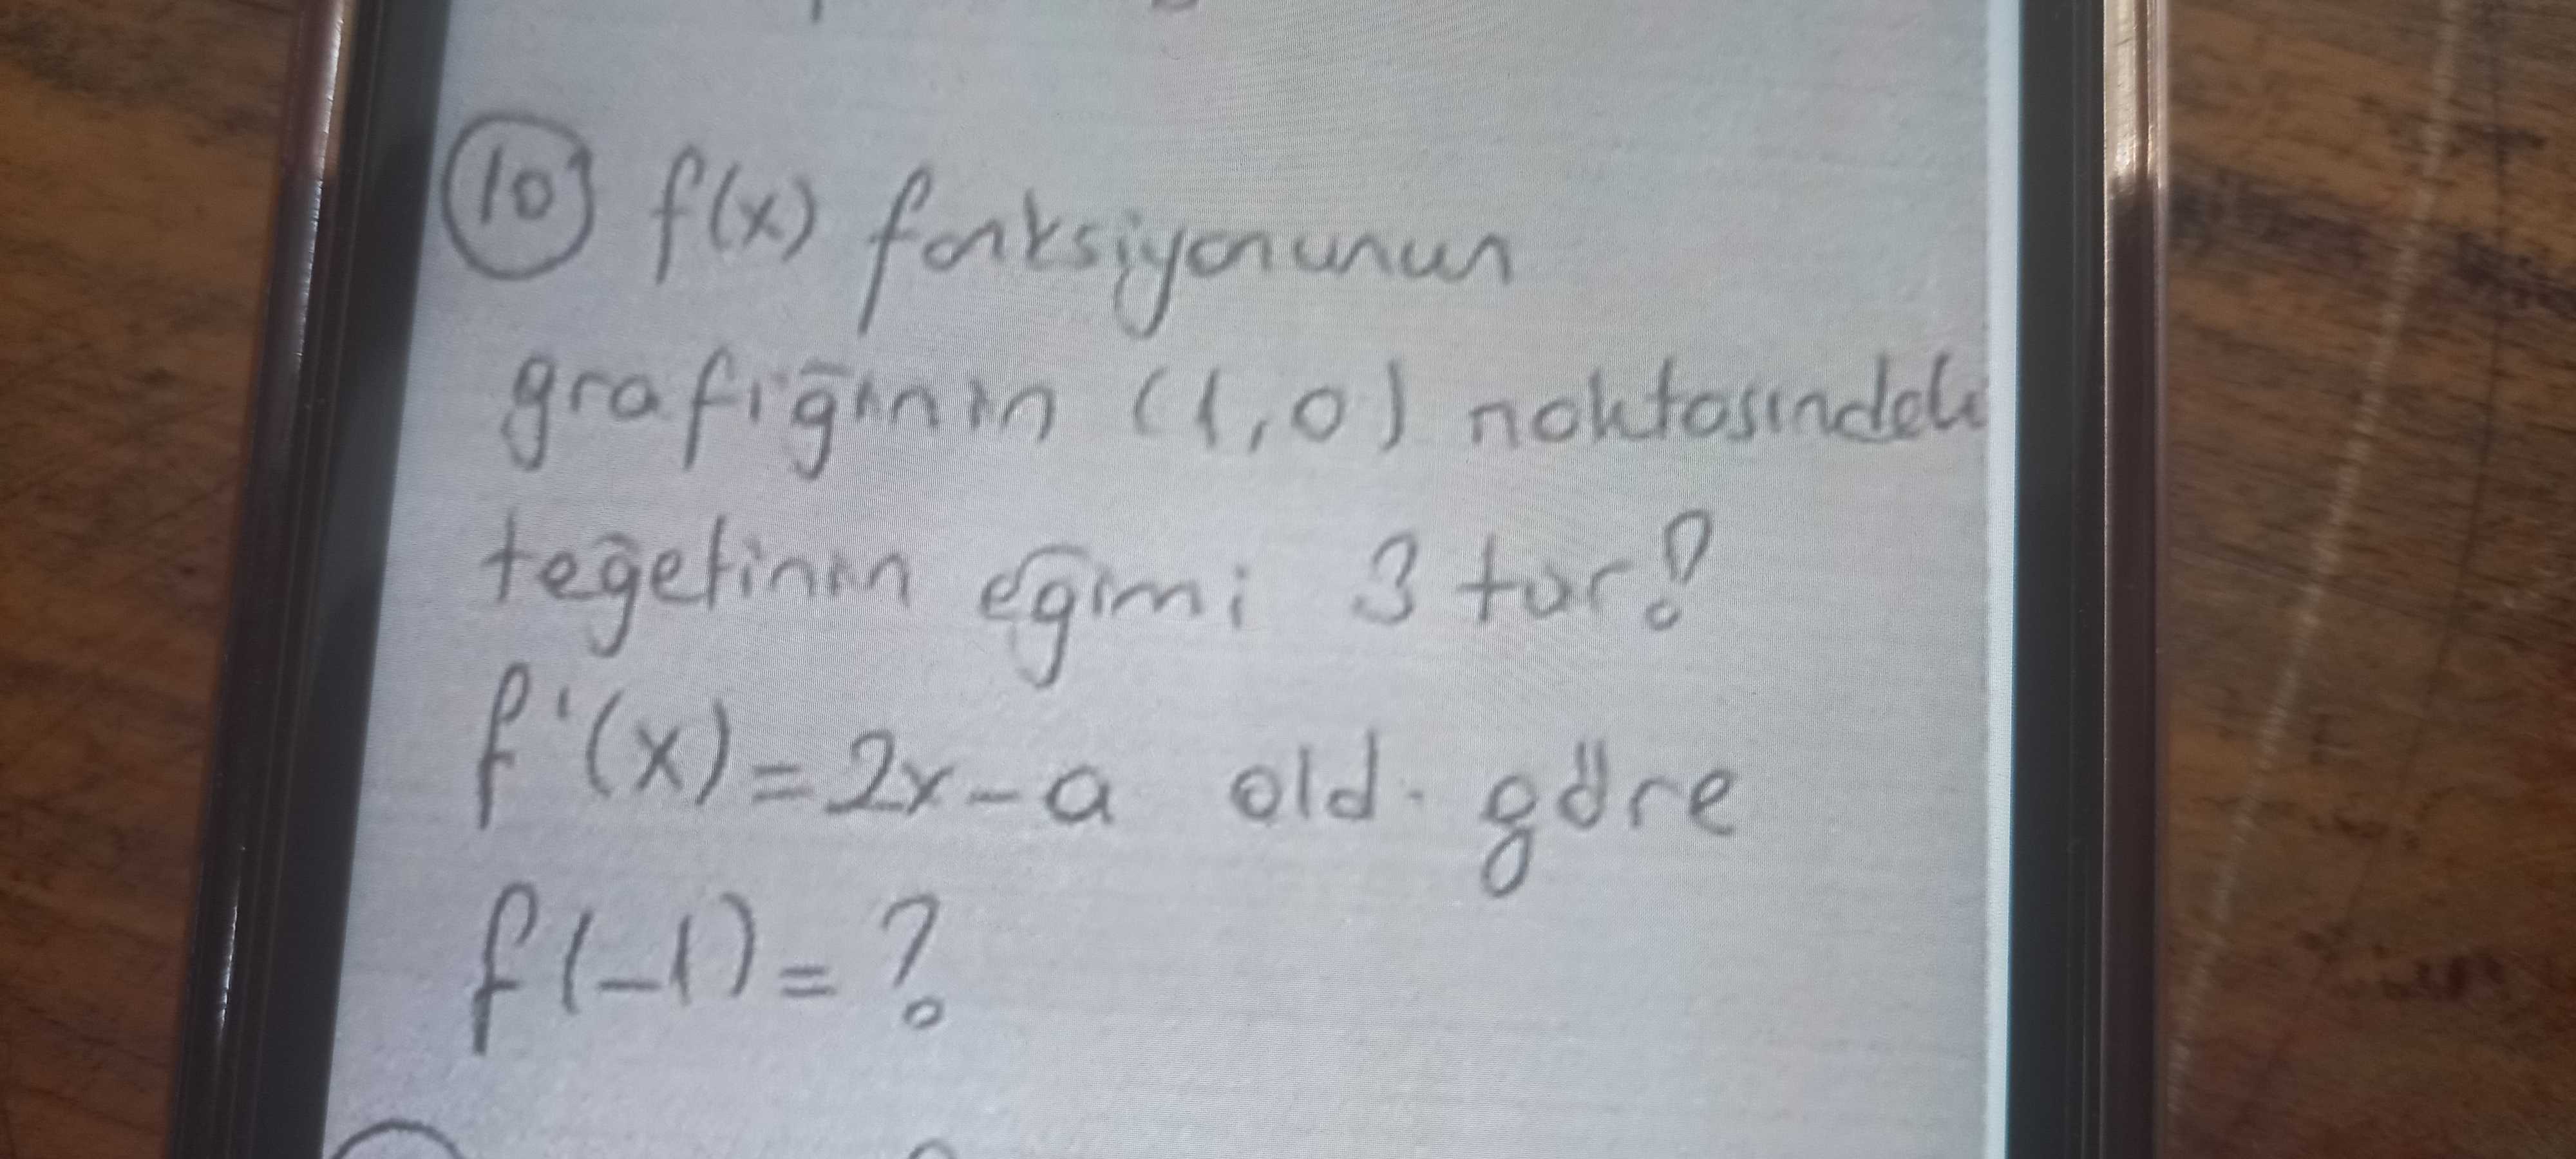 10) f(x) fonksiyonunun
grafiğinin (1,0) noktasındaki
teğetinin eğimi 3 tür?
f'(x)=2x-a old. göre
f(-1)=?